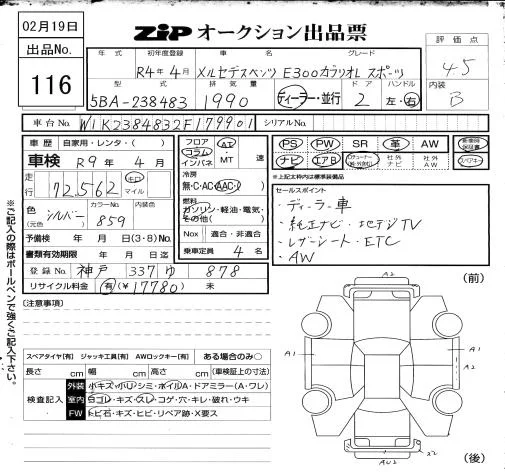 02月19日
ZiP オークション出品票
出品No.
116
評価点
4.5
内装
B
年式 初年度登録 車名 グレード
R4年4月 メルセデスベンツ E300カブリオレ スポーツ
型式 排気量 ドア ハンドル
5BA-238483 1990 ディーラー・並行 2 左・右
車台No. W1K2384832F179901 シリアルNo.
車歴 自家用・レンタ・( )
車検 R9年4月
走行 72,562 キロ マイル
色(元色) シルバー カラーNo. 859 内装色
予備検 年 月 日(3・8)No.
書類有効期限 年 月 日迄
登録No. 神戸 337 ゆ 878
リサイクル料金 有(¥17780) 未
フロア コラム インパネ AT・MT 速
冷房 無・C・AC・AAC
燃料 ガソリン・軽油・電気・その他( )
Nox 適合・非適合
乗車定員 4名
PS PW SR 革 AW
ナビ エアB 社外ナビ 社外AW
※上記太枠内は標準装備品
セールスポイント
・ディーラー車
・純正ナビ・地デジTV
・レザーシート・ETC
・AW
※ご記入の際はボールペンで強くご記入下さい。
(注意事項)
スペアタイヤ[有] ジャッキ工具[有] AWロックキー[有] ある場合のみ○
長さ cm 幅 cm 高さ cm (車検証上の寸法)
検査記入
外装 小キズ・小U・シミ・ホイルA・ドアミラー(A・ワレ)
室内 ヨゴレ・キズ・スレ・コゲ・穴・キレ・破れ・ウキ
FW トビ石・キズ・ヒビ・リペア跡・X要ス
(前)
A2
A1
A1
A2
22
AU2
(後)